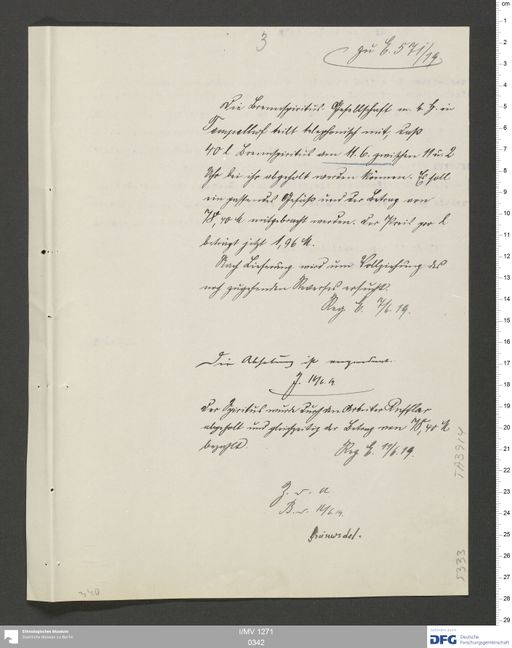 3
zu E. 571/19
Die Brennspiritus-Gesellschaft m. b. H. in
Tempelhof teilt telephonisch mit, daß
40 l Brennspiritus am 11.6. zwischen 11 u 2
Uhr bei ihr abgeholt werden können. Es soll
ein passendes Gefäß und der Betrag von
78,40 M mitgebracht werden. Der Preis pro l
beträgt jetzt 1,96 M.
Nach Lieferung wird um Vollziehung des
noch zugehenden Reverses ersucht.
Reg E. 7/6.19.
Die Abholung ist angeordnet.
J. 10/6.19
Der Spiritus wurde durch den Arbeiter
abgeholt und gleichzeitig der Betrag von 78,40 M
bezahlt.
Reg E. 11/6.19.
Z. d. A
B. d. /6.19.
Grünwedel.
TA3914
5333
340
Ethnologisches Museum
Staatliche Museen zu Berlin
I/MV 1271
0342
DFG Deutsche
Forschungsgemeinschaft
cm
1
2
3
4
5
6
7
8
9
10
11
12
13
14
15
16
17
18
19
20
21
22
23
24
25
26
27
28
29